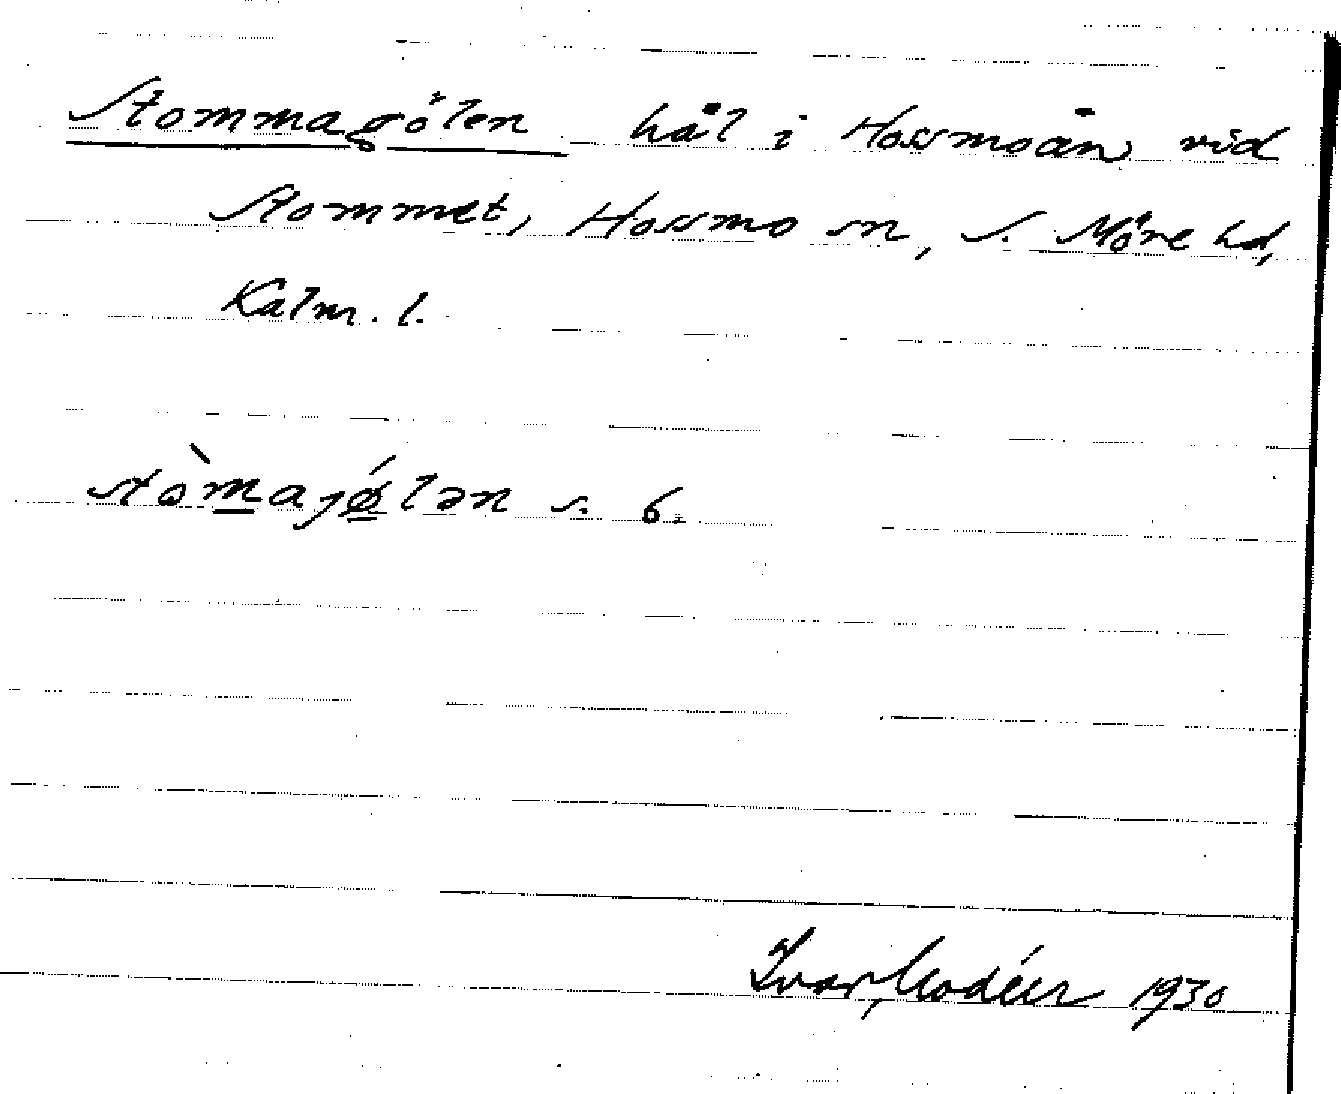 Stommagölen hål i Hossmoån vid
Stommet, Hossmo sn, S. Möre hd,
Kalm. l.
stòm̲ajǿ̲lən s. 6.
Ivar Modéer 1930